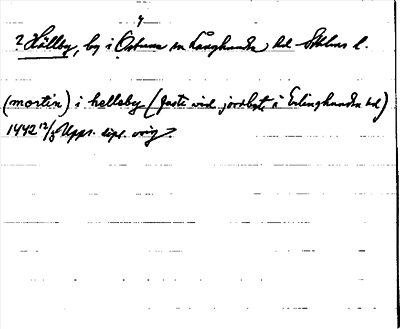 ? Hällby, by i Östuna sn Långhundra hd Sthlms l.
(mortin) i hælleby (faste vid jordbyte i Erlinghundra hd)
1442 12/3 Upps. dipl. orig.